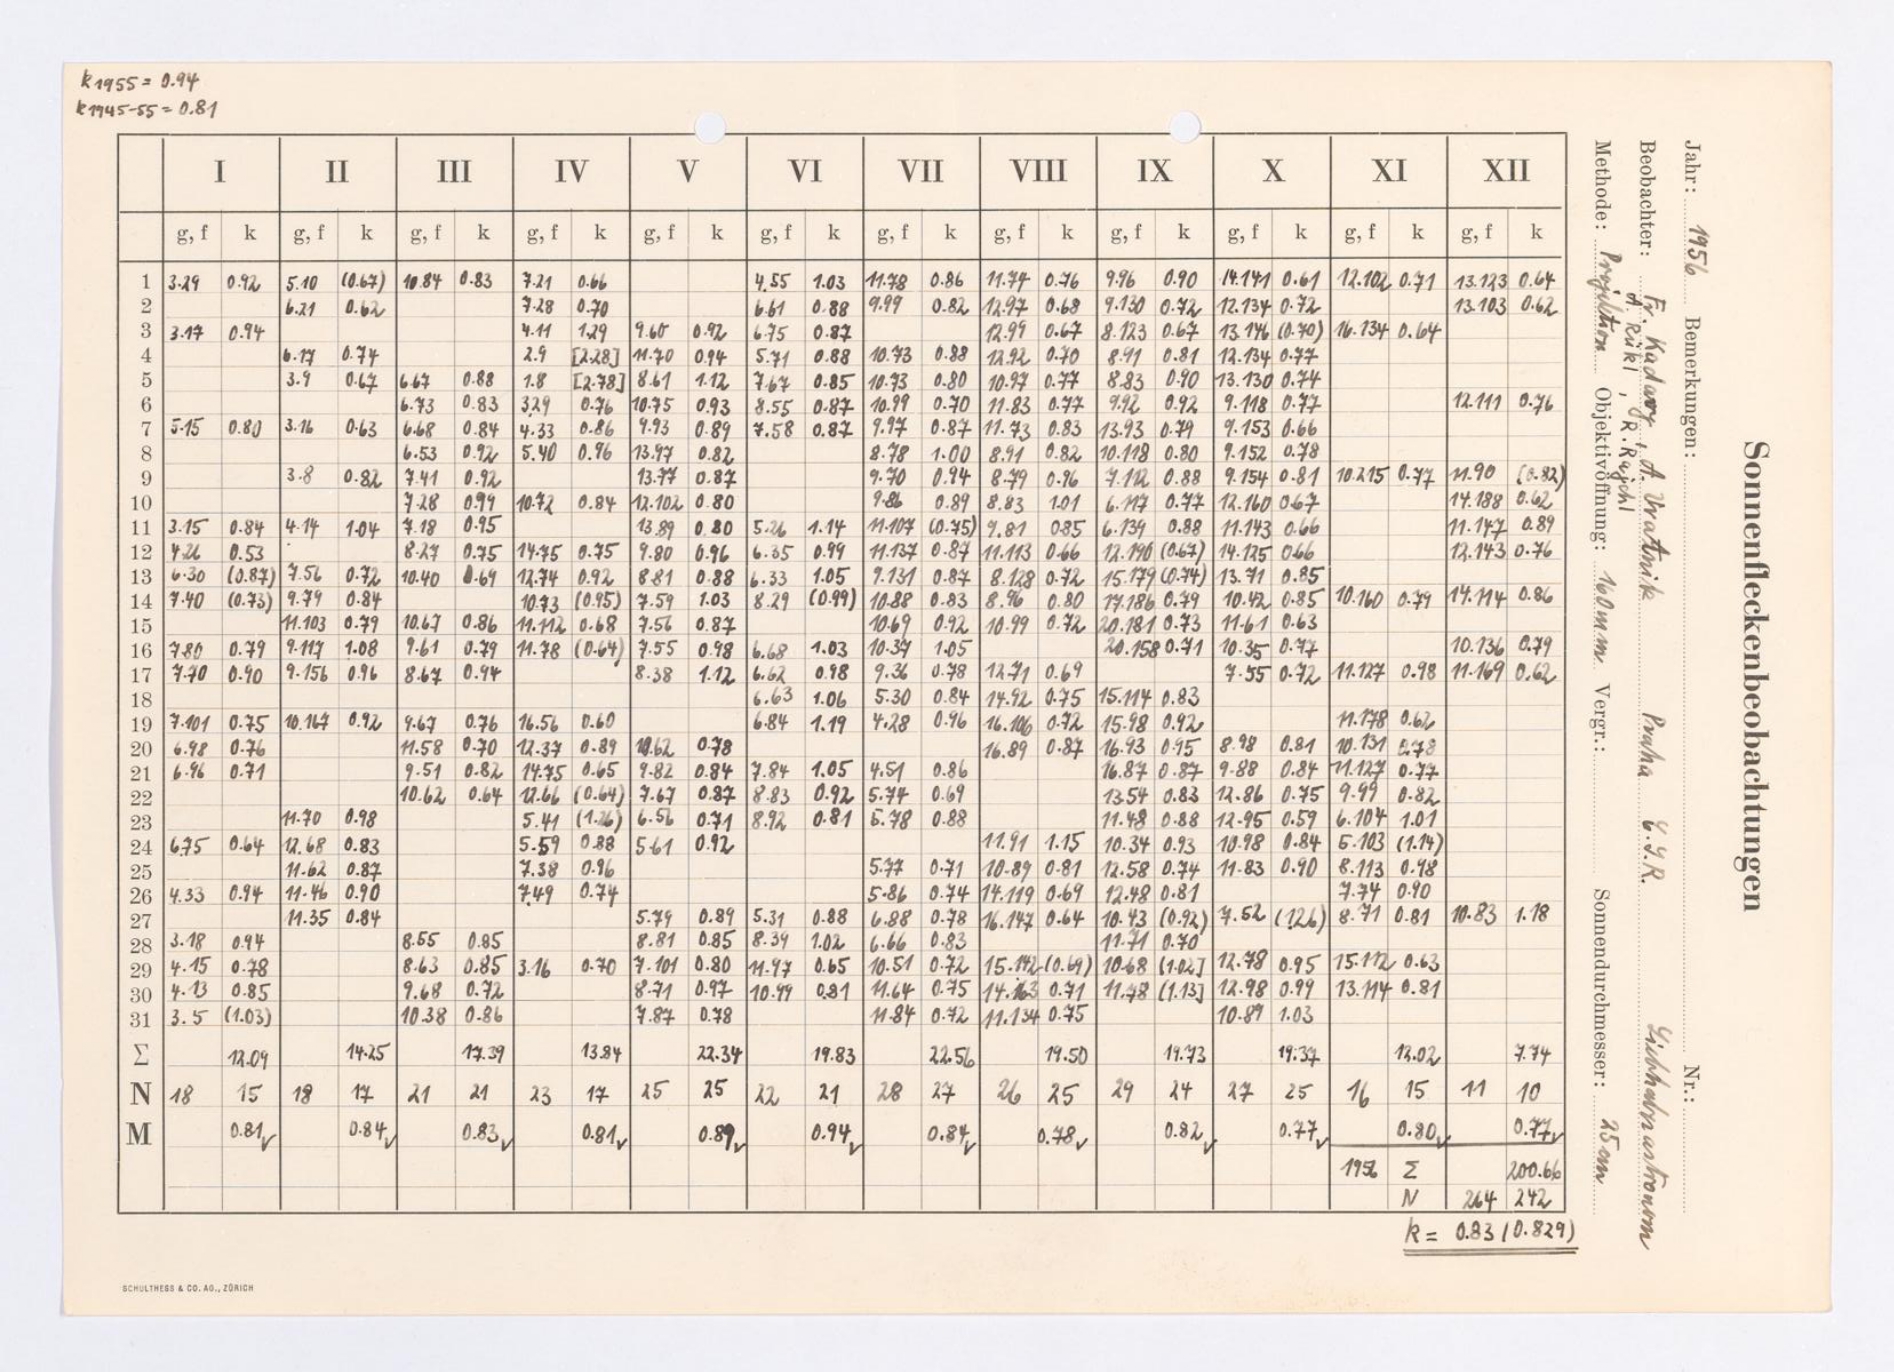 k1955 = 0.94
k1945-55 = 0.81
I II III IV V VI VII VIII IX X XI XII
g, f k g, f k g, f k g, f k g, f k g, f k g, f k g, f k g, f k g, f k g, f k g, f k
1 3.29 0.92 5.10 (0.67) 10.84 0.83 7.21 0.66 4.55 1.03 11.78 0.86 11.74 0.76 9.96 0.90 14.141 0.61 12.102 0.71 13.123 0.64
2 6.21 0.62 7.28 0.70 6.61 0.88 9.99 0.82 12.97 0.68 9.130 0.72 12.134 0.72 13.103 0.62
3 3.17 0.94 4.11 1.29 9.60 0.92 6.75 0.87 12.99 0.67 8.123 0.67 13.146 (0.70) 16.134 0.64
4 6.17 0.74 2.9 [2.28] 11.70 0.94 5.71 0.88 10.73 0.88 12.92 0.70 8.91 0.81 12.134 0.77
5 3.9 0.67 6.67 0.88 1.8 [2.78] 8.61 1.12 7.67 0.85 10.73 0.80 10.97 0.77 8.83 0.90 13.130 0.74
6 6.73 0.83 3.29 0.76 10.75 0.93 8.55 0.87 10.99 0.70 11.83 0.77 9.92 0.92 9.118 0.77 12.111 0.76
7 5.15 0.80 3.16 0.63 6.68 0.84 4.33 0.86 9.93 0.89 7.58 0.87 9.97 0.87 11.73 0.83 13.93 0.79 9.153 0.66
8 6.53 0.92 5.40 0.96 13.97 0.82 8.78 1.00 8.91 0.82 10.118 0.80 9.152 0.78
9 3.8 0.82 7.41 0.92 13.77 0.87 9.70 0.94 8.79 0.96 7.112 0.88 9.154 0.81 10.215 0.77 11.90 (0.82)
10 7.28 0.99 10.72 0.84 12.102 0.80 9.86 0.89 8.83 1.01 6.117 0.77 12.160 0.67 14.188 0.62
11 3.15 0.84 4.14 1.04 7.18 0.95 13.89 0.80 5.26 1.14 11.107 (0.75) 9.81 0.85 6.139 0.88 11.143 0.66 11.147 0.89
12 4.26 0.53 8.27 0.75 14.75 0.75 9.80 0.96 6.35 0.99 11.137 0.87 11.113 0.66 12.190 (0.67) 14.125 0.66 12.143 0.76
13 6.30 (0.87) 7.56 0.72 10.40 0.69 12.74 0.92 8.81 0.88 6.33 1.05 9.131 0.87 8.128 0.72 15.179 (0.74) 13.71 0.85
14 7.40 (0.73) 9.79 0.84 10.73 (0.95) 7.59 1.03 8.29 (0.99) 10.88 0.83 8.96 0.80 17.186 0.79 10.42 0.85 10.160 0.79 14.114 0.86
15 11.103 0.79 10.67 0.86 11.112 0.68 7.56 0.87 10.69 0.92 10.99 0.72 20.181 0.73 11.61 0.63
16 7.80 0.79 9.117 1.08 9.61 0.79 11.78 (0.64) 7.55 0.98 6.68 1.03 10.39 1.05 20.158 0.71 10.35 0.77 10.136 0.79
17 7.70 0.90 9.156 0.96 8.67 0.94 8.38 1.12 6.62 0.98 9.36 0.78 12.71 0.69 7.55 0.72 11.127 0.98 11.169 0.62
18 6.63 1.06 5.30 0.84 14.92 0.75 15.114 0.83
19 7.101 0.75 10.167 0.92 9.67 0.76 16.56 0.60 6.84 1.19 4.28 0.96 16.106 0.72 15.98 0.92 11.178 0.62
20 6.98 0.76 11.58 0.70 12.37 0.89 10.62 0.78 16.89 0.87 16.93 0.95 8.98 0.81 10.131 0.78
21 6.96 0.71 9.51 0.82 14.75 0.65 9.82 0.84 7.84 1.05 4.51 0.86 16.87 0.87 9.88 0.84 11.127 0.77
22 10.62 0.64 12.66 (0.64) 7.67 0.87 8.83 0.92 5.74 0.69 13.54 0.83 12.86 0.75 9.99 0.82
23 11.70 0.98 5.41 (1.26) 6.56 0.71 8.92 0.81 5.78 0.88 11.48 0.88 12.95 0.59 6.104 1.01
24 6.75 0.64 12.68 0.83 5.59 0.88 5.61 0.92 11.91 1.15 10.34 0.93 10.98 0.84 5.103 (1.14)
25 11.62 0.87 7.38 0.96 5.77 0.71 10.89 0.81 12.58 0.74 11.83 0.90 8.113 0.98
26 4.33 0.94 11.46 0.90 7.49 0.74 5.86 0.74 14.119 0.69 12.48 0.81 7.74 0.90
27 11.35 0.84 5.79 0.89 5.31 0.88 6.88 0.78 16.147 0.64 10.43 (0.92) 7.52 (1.26) 8.71 0.81 10.83 1.18
28 3.18 0.94 8.55 0.85 8.81 0.85 8.39 1.02 6.66 0.83 11.71 0.70
29 4.15 0.78 8.63 0.85 3.16 0.70 7.101 0.80 11.97 0.65 10.51 0.72 15.142 (0.69) 10.68 [1.02] 12.78 0.95 15.112 0.63
30 4.13 0.85 9.68 0.72 8.71 0.97 10.99 0.81 11.64 0.75 14.163 0.71 11.78 [1.13] 12.98 0.99 13.114 0.81
31 3.5 (1.03) 10.38 0.86 7.87 0.78 11.84 0.72 11.134 0.75 10.89 1.03
Σ 12.09 14.25 17.39 13.84 22.34 19.83 22.56 19.50 19.73 19.37 12.02 7.74
N 18 15 18 17 21 21 23 17 25 25 22 21 28 27 26 25 29 24 27 25 16 15 11 10
M 0.81 0.84 0.83 0.81 0.89 0.94 0.84 0.78 0.82 0.77 0.80 0.77
1956 Σ 200.66
N 264 242
k = 0.83 (0.829)
SCHULTHESS & CO. AG., ZÜRICH
Sonnenfleckenbeobachtungen
Jahr: 1956 Bemerkungen: Nr.:
Beobachter: Fr. Kadavy, A. Vratnik Praha Č.S.R. Liebhaberastronom
A. Rükl, R. Rajchl
Methode: Projektion Objektivöffnung: 160mm Vergr.: Sonnendurchmesser: 25cm